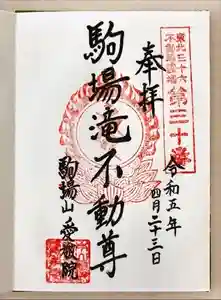 奉拝
東北三十六
不動尊霊場
第三十番
令和五年
四月二十三日
駒場滝不動尊
駒場山 愛敬院